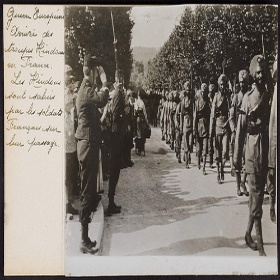 Guerre Européenne
Arrivée des
troupes Hindoues
en France.
Les Hindous
sont salués
par les soldats
Français sur
leur passage.